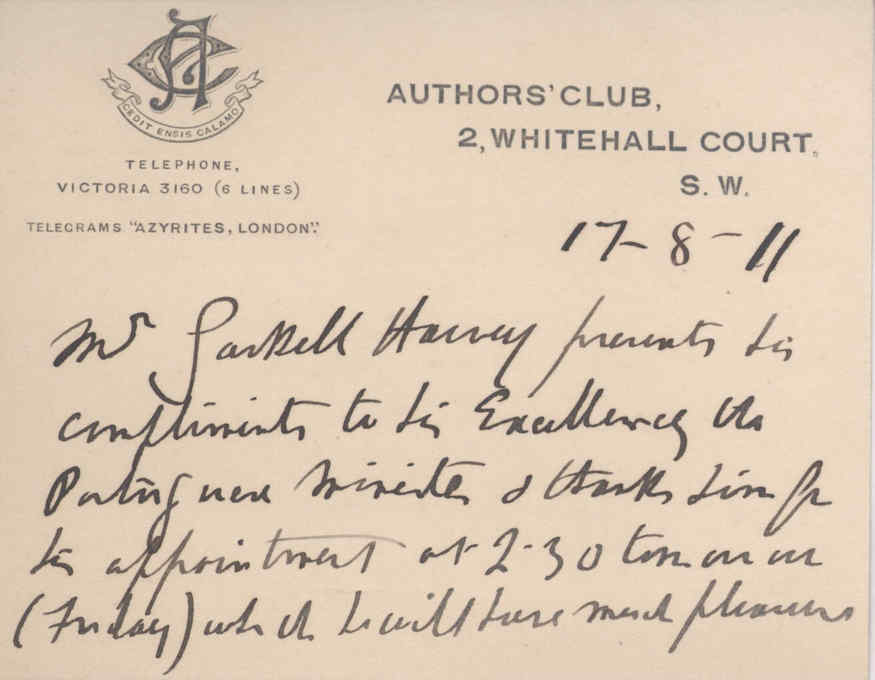 CEDIT ENSIS CALAMO
TELEPHONE,
VICTORIA 3160 (6 LINES)
TELEGRAMS "AZYRITES, LONDON".
AUTHORS' CLUB,
2, WHITEHALL COURT,
S. W.
17-8-11
Mr Gaskell Harvey presents his
compliments to his Excellency the
Portuguese Minister & thanks him for
his appointment at 2-30 tomorrow
(Friday) which he will have much pleasure